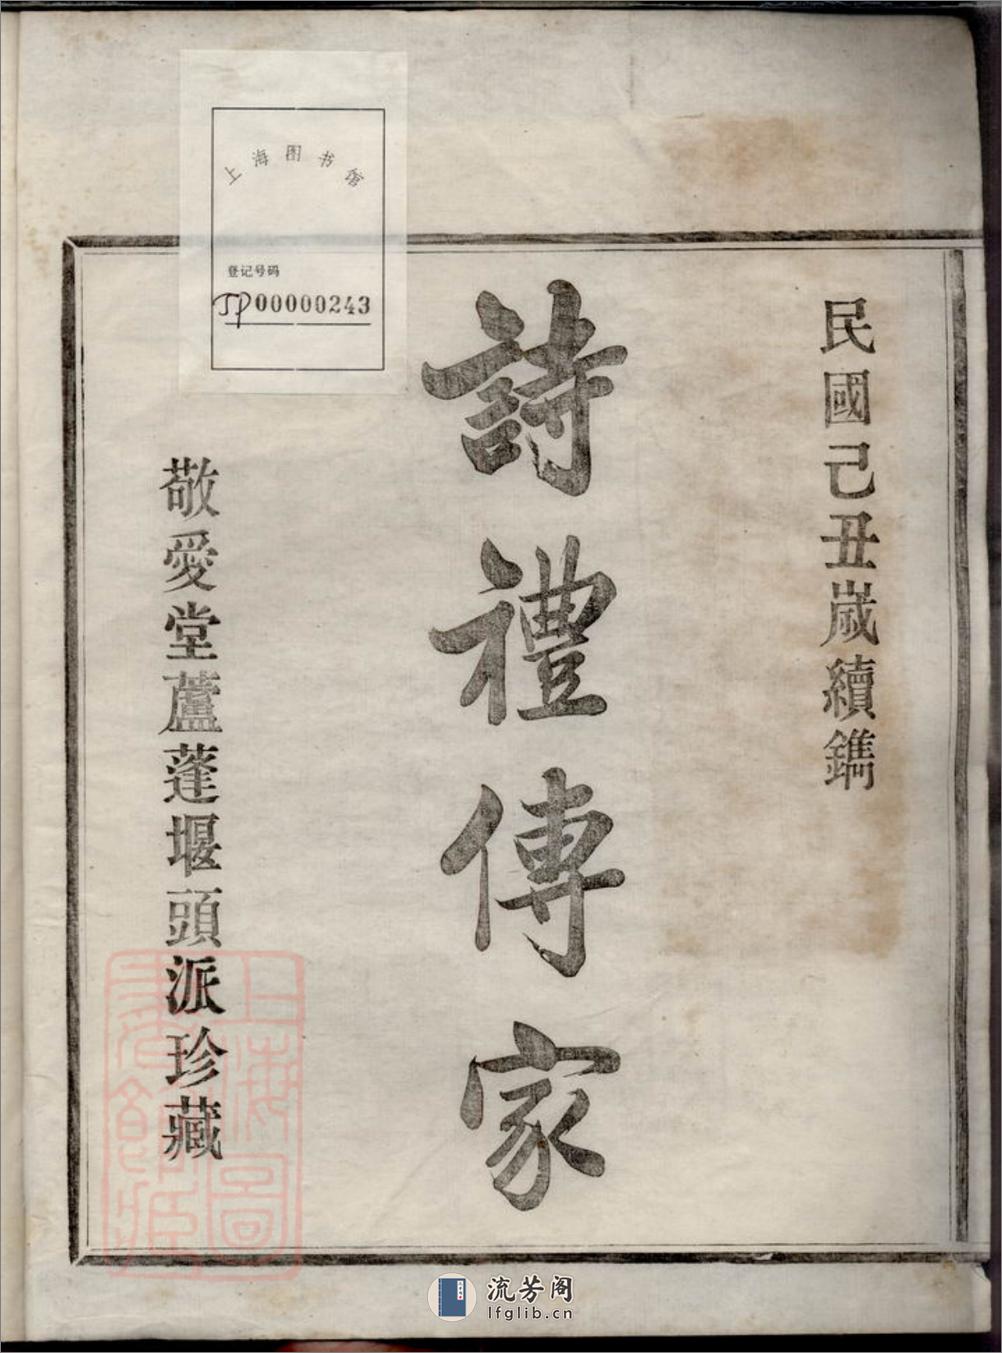 上海图书馆
登记号码
JP00000243
民國己丑嵗續鐫
詩禮傳家
敬愛堂蘆蓬堰頭派珍藏
上海圖書館藏
流芳阁
lfglib.cn